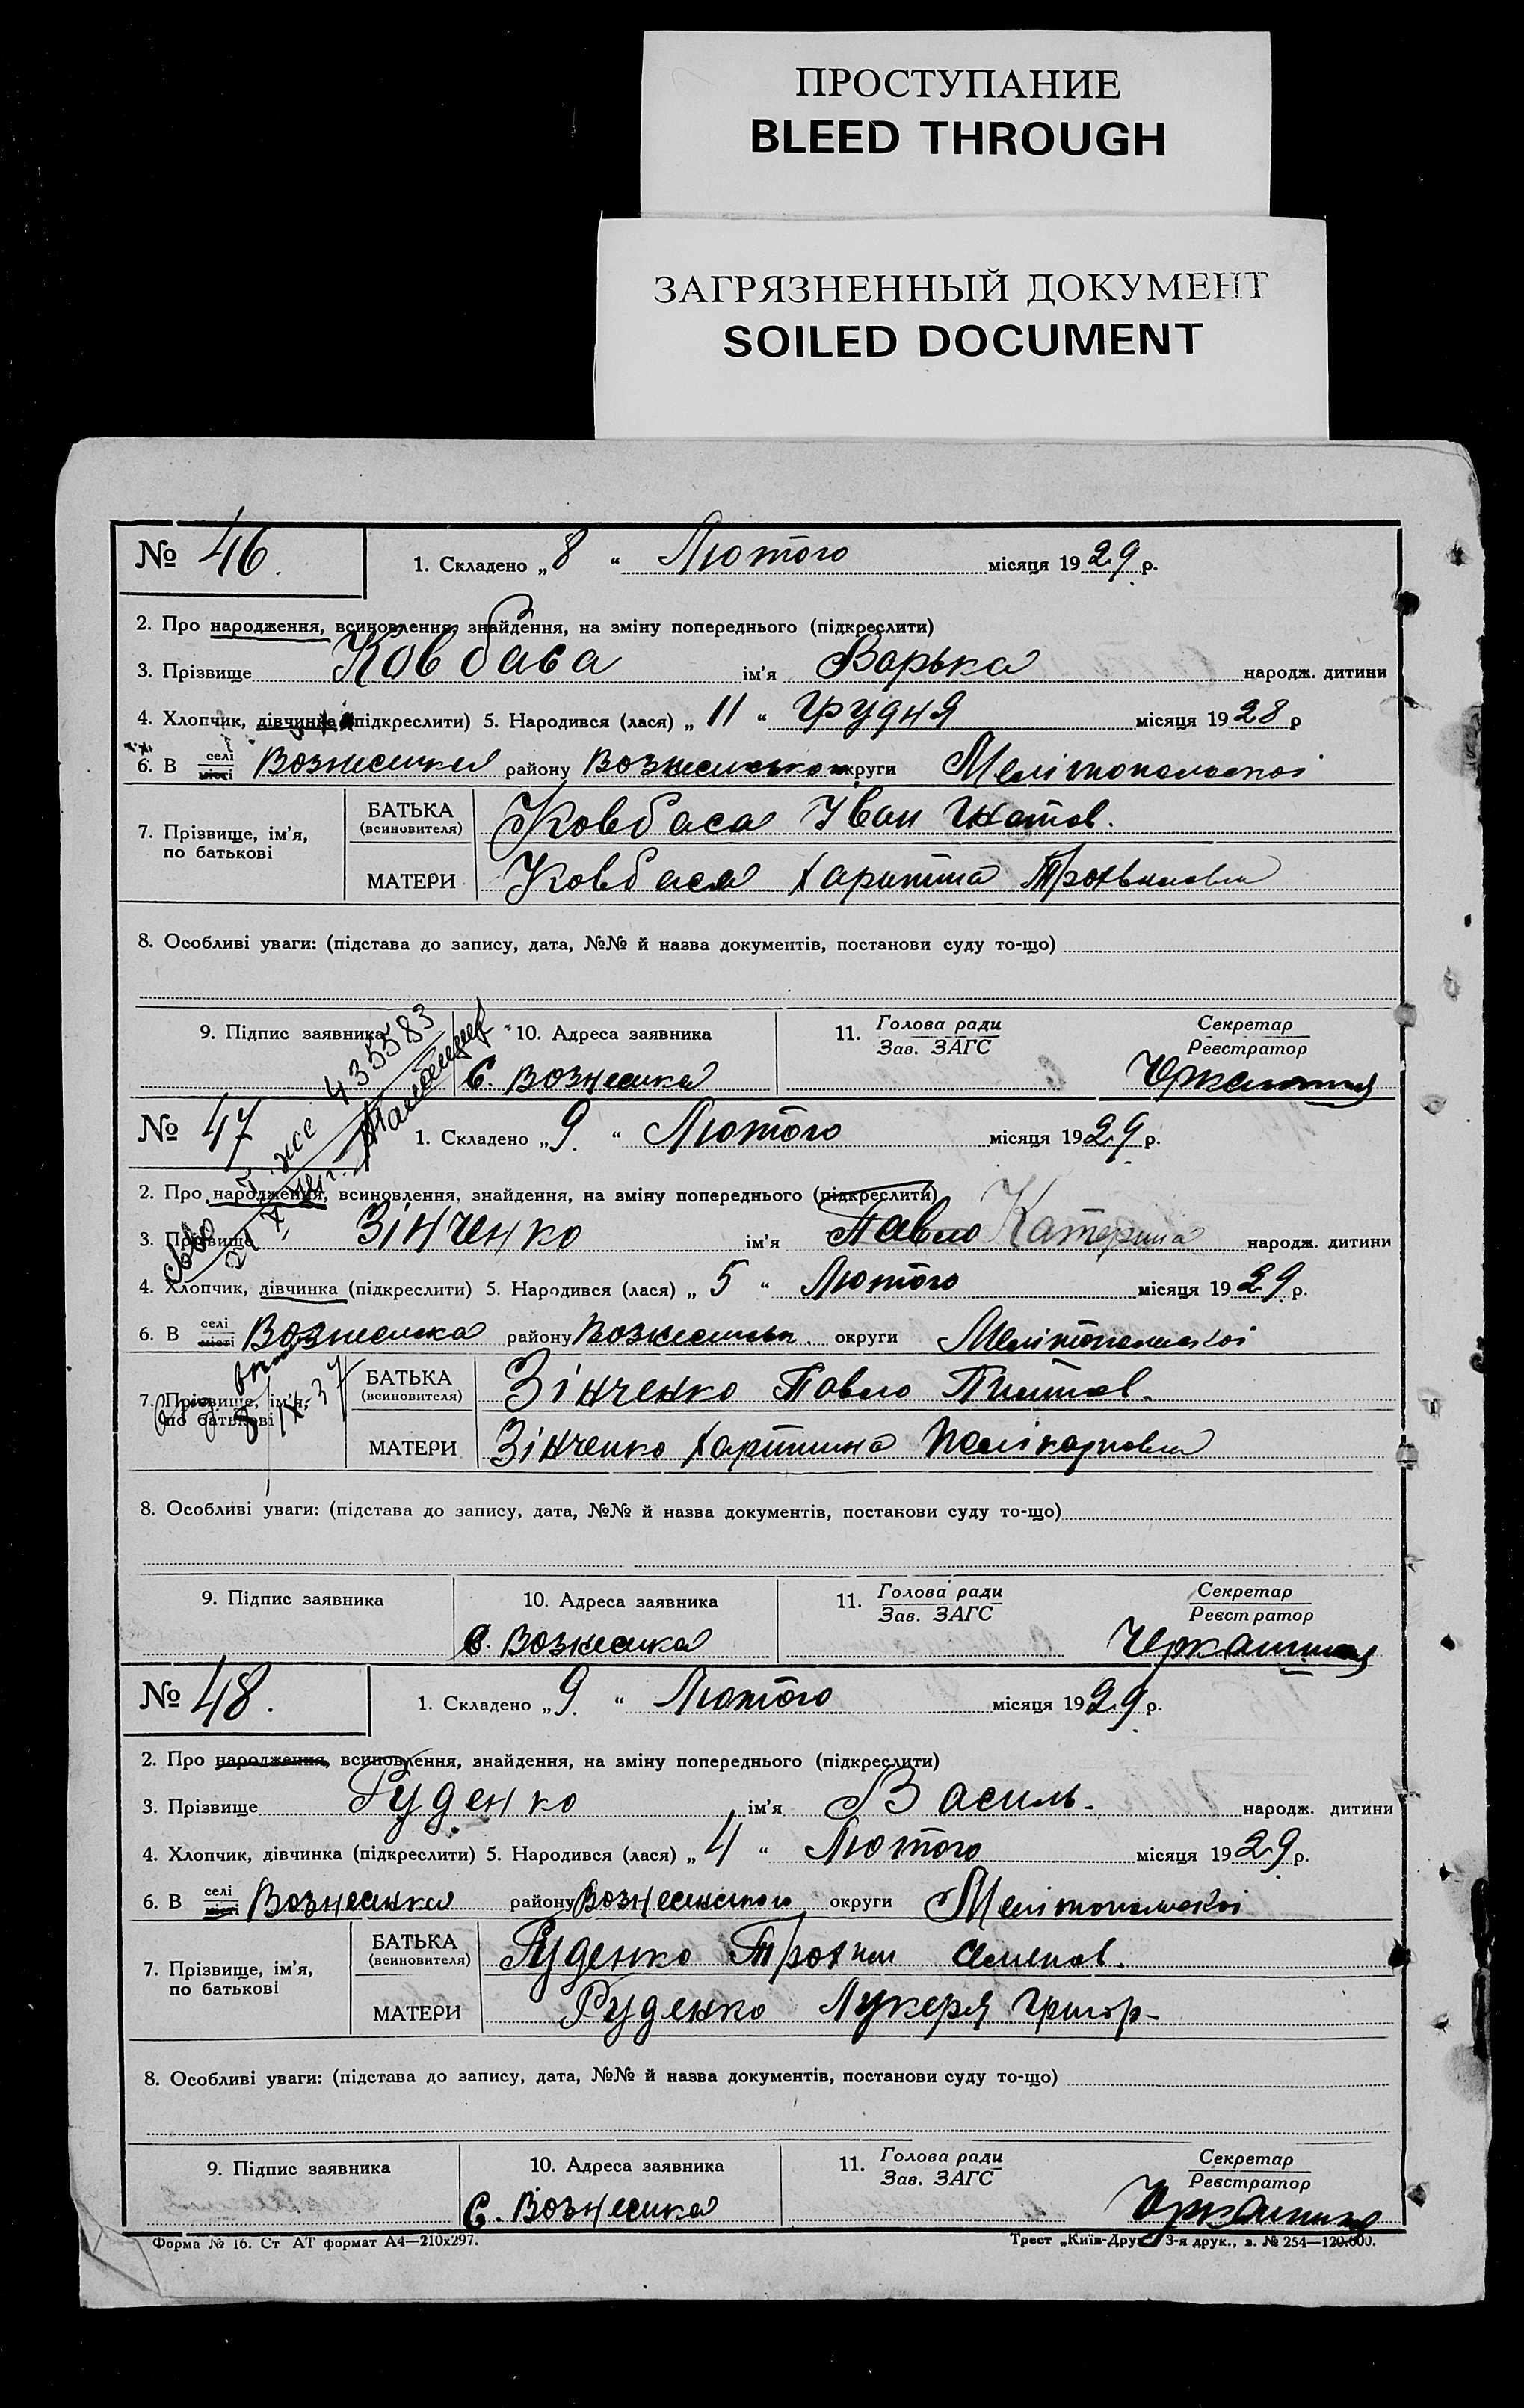 ПРОСТУПАНИЕ
BLEED THROUGH
ЗАГРЯЗНЕННЫЙ ДОКУМЕНТ
SOILED DOCUMENT
№ 46. 1. Складено „ 8 “ Лютого місяця 1929 р.
2. Про народження, всиновлення, знайдення, на зміну попереднього (підкреслити)
3. Прізвище Ковбаса ім'я Варька народж. дитини
4. Хлопчик, дівчинка (підкреслити) 5. Народився (лася) „ 11 “ Грудня місяця 1928 р
6. В селі місті Вознесенка району Вознесенського округи Мелітопольської
7. Прізвище, ім'я, по батькові
БАТЬКА (всиновителя) Ковбаса Іван Игнатов.
МАТЕРИ Ковбаса Харитина
8. Особливі уваги: (підстава до запису, дата, №№ й назва документів, постанови суду то-що)
9. Підпис заявника 10. Адреса заявника 11. Голова ради Зав. ЗАГС Секретар Реєстратор
С. Вознесенка
435583
№ 47 1. Складено „ 9. “ Лютого місяця 1929 р.
2. Про народження, всиновлення, знайдення, на зміну попереднього (підкреслити)
3. Прізвище Зінченко ім'я Павло Катерина народж. дитини
4. Хлопчик, дівчинка (підкреслити) 5. Народився (лася) „ 5 “ Лютого місяця 1929 р.
6. В селі місті Вознесенка району Вознесенськ. округи Мелітопольської
7. Прізвище, ім'я, по батькові
БАТЬКА (всиновителя) Зінченко Павло
МАТЕРИ Зінченко Харитина Полікарповна
8. Особливі уваги: (підстава до запису, дата, №№ й назва документів, постанови суду то-що)
9. Підпис заявника 10. Адреса заявника 11. Голова ради Зав. ЗАГС Секретар Реєстратор
С. Вознесенка
№ 48. 1. Складено „ 9. “ Лютого місяця 1929 р.
2. Про народження, всиновлення, знайдення, на зміну попереднього (підкреслити)
3. Прізвище Руденко ім'я Василь. народж. дитини
4. Хлопчик, дівчинка (підкреслити) 5. Народився (лася) „ 4 “ Лютого місяця 1929 р.
6. В селі місті Вознесенка району Вознесенського округи Мелітопольської
7. Прізвище, ім'я, по батькові
БАТЬКА (всиновителя) Руденко Трохим Семенов.
МАТЕРИ Руденко Лукеря Григор-
8. Особливі уваги: (підстава до запису, дата, №№ й назва документів, постанови суду то-що)
9. Підпис заявника 10. Адреса заявника 11. Голова ради Зав. ЗАГС Секретар Реєстратор
С. Вознесенка
Форма № 16. Ст АТ формат А4—210х297. Трест „Київ-Друк 3-я друк., з. № 254—120.000.